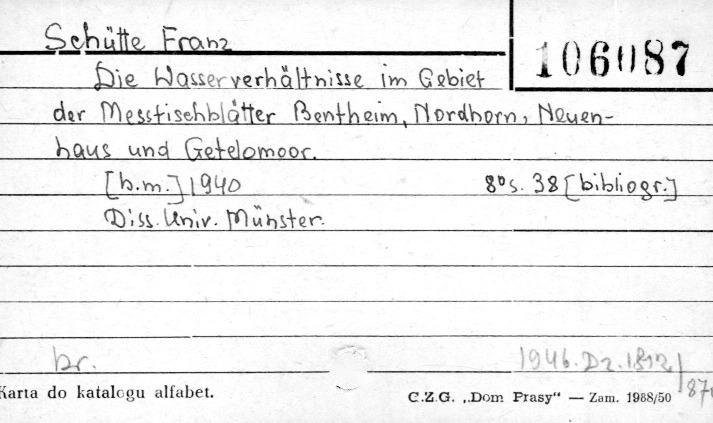 Schütte Franz
106087
Die Wasserverhältnisse im Gebiet
der Messtischblätter Bentheim, Nordhorn, Neuen-
haus und Getelomoor.
[b.m.] 1940 8º s. 38 [bibliogr.]
Diss. Univ. Münster.
br. 1946. Dz. 1812/
Karta do katalogu alfabet. C.Z.G. „Dom Prasy“ — Zam. 1988/50